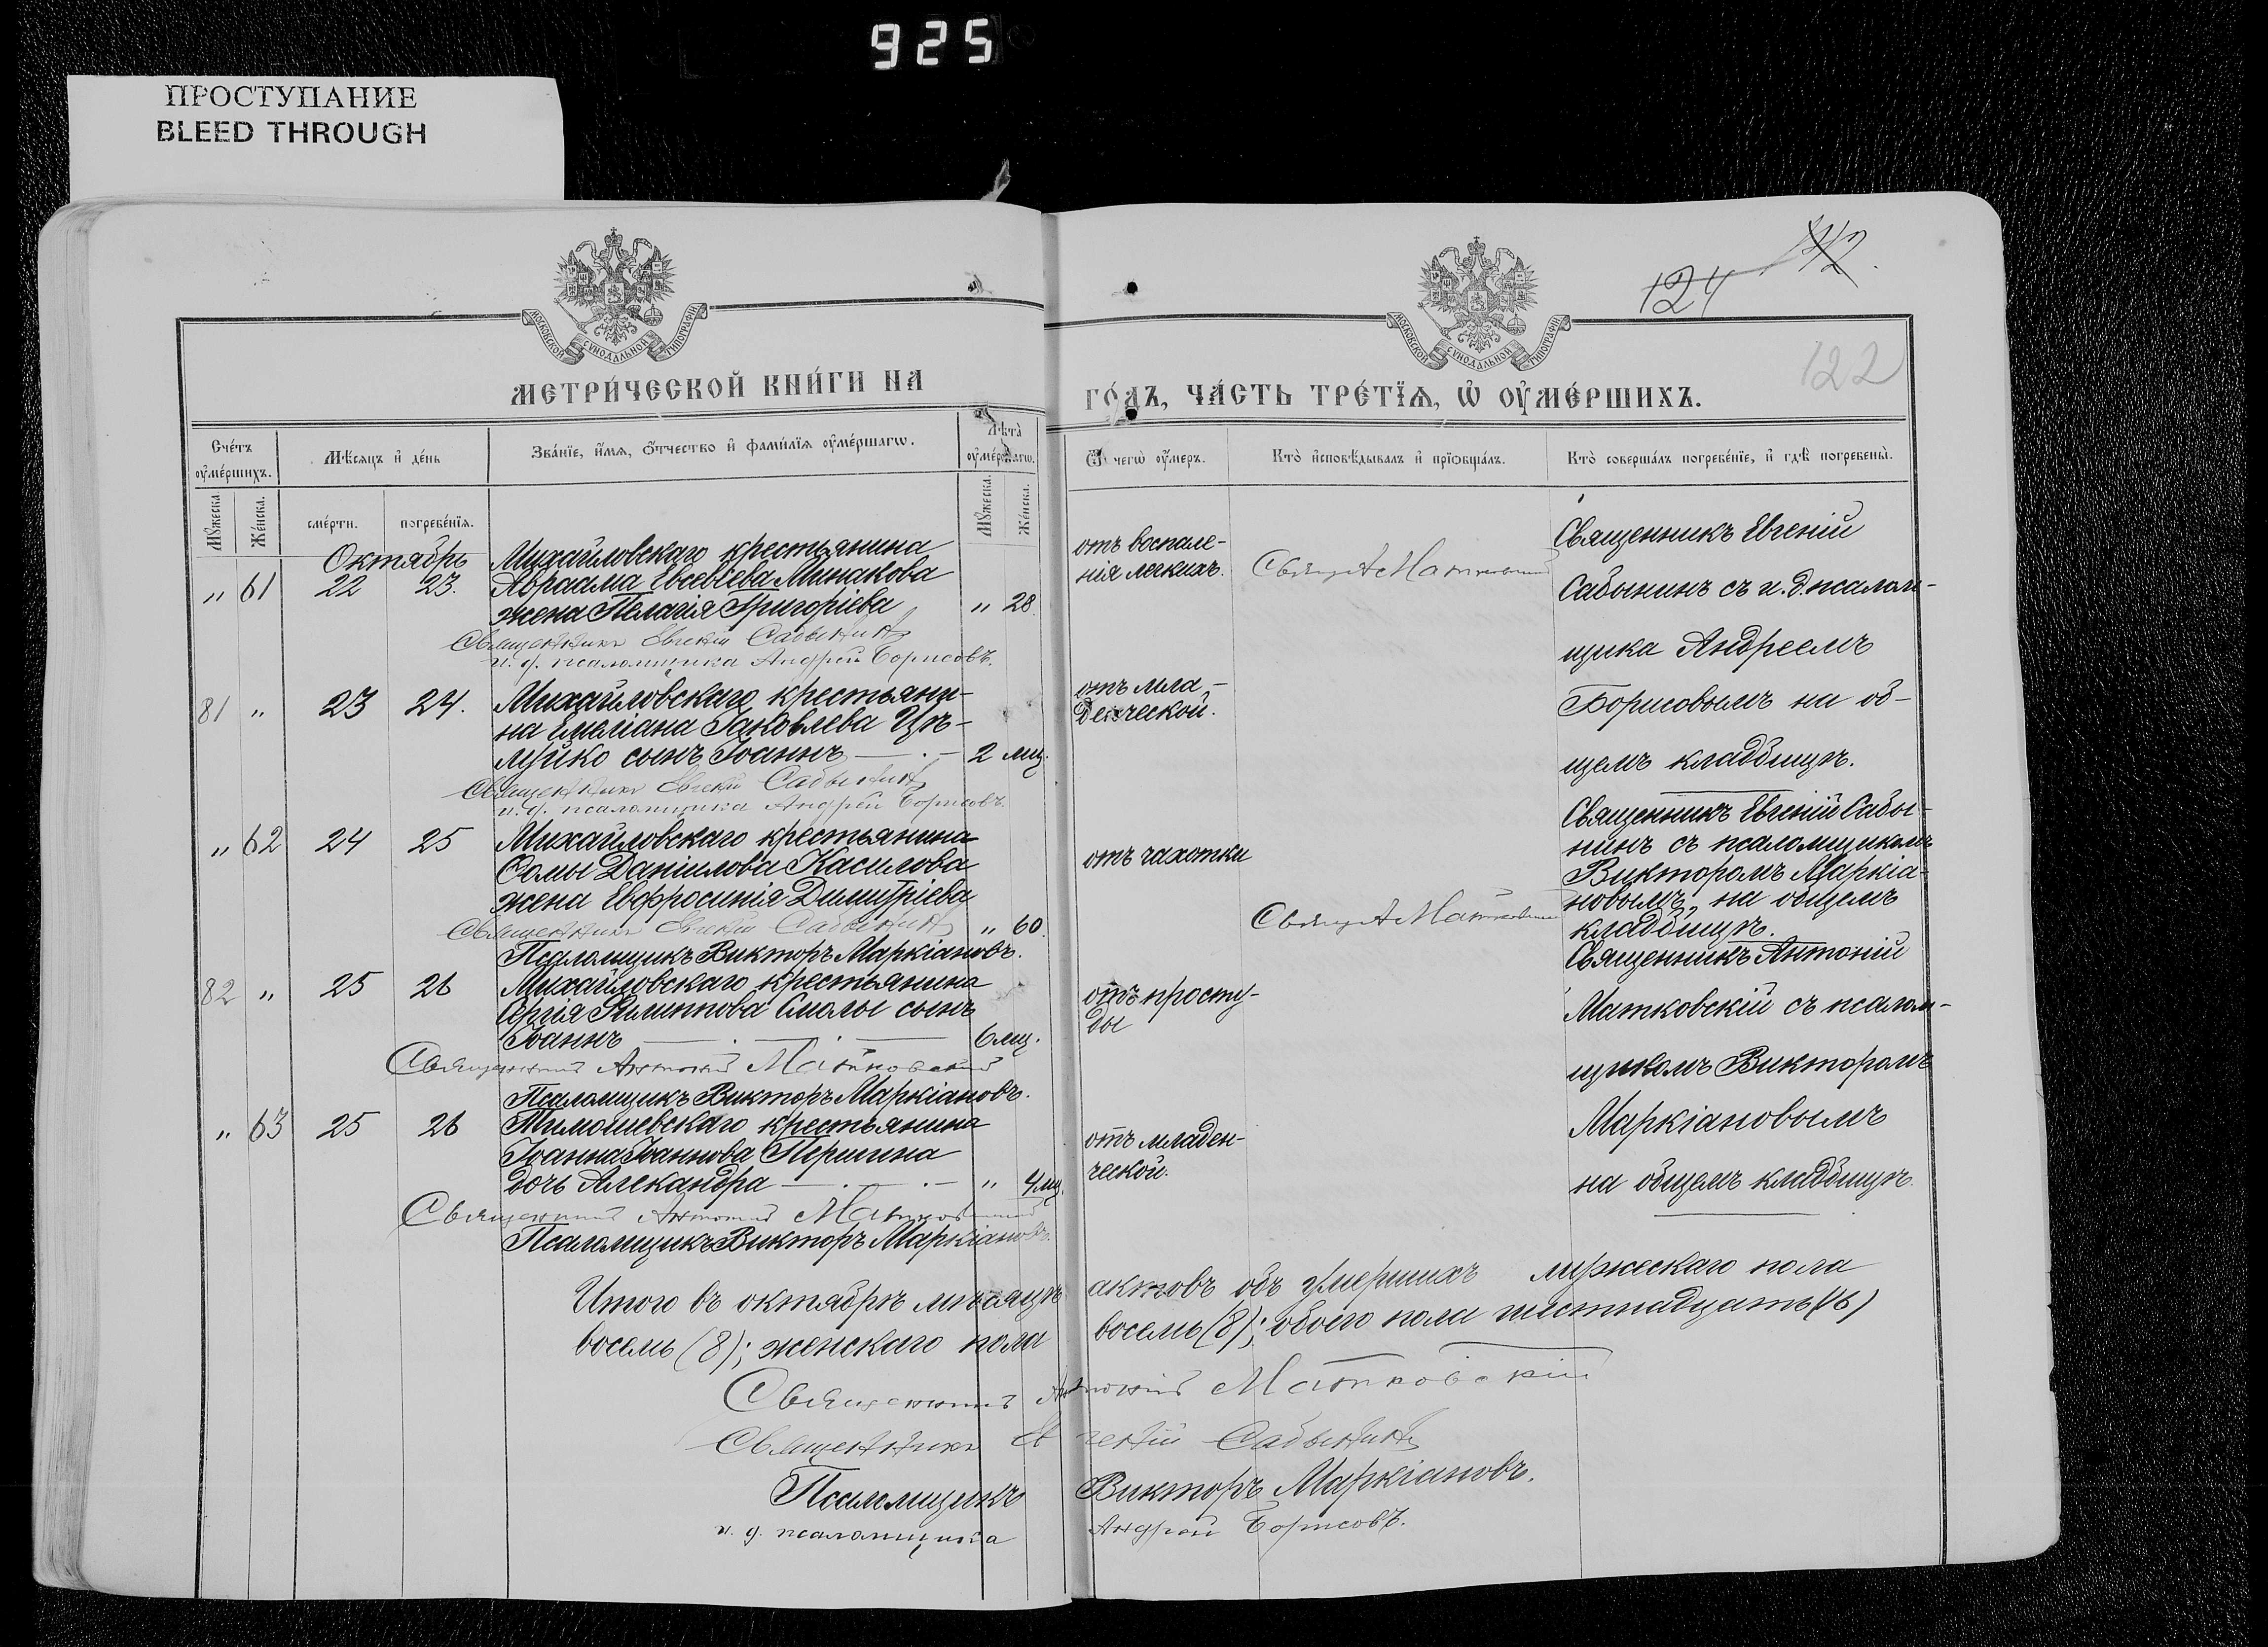 925
ПРОСТУПАНИЕ
BLEED THROUGH
124
122
МОСКОВСКОЙ СѴНОДАЛЬНОЙ ТИПОГРАФІИ
МОСКОВСКОЙ СѴНОДАЛЬНОЙ ТИПОГРАФІИ
МЕТРИ́ЧЕСКОЙ КНИ́ГИ НА
ГО́ДЪ, ЧА́СТЬ ТРЕ́ТЇѦ, Ѡ҆ ОУ҆МЕ́РШИХЪ.
Сче́тъ оу҆ме́ршихъ.
Мѣ́сяцъ и҆ де́нь
Зва́нїе, и҆́мѧ, ѻ҆́тчество и҆ фами́лїѧ оу҆ме́ршагѡ.
Лѣта̀ оу҆ме́ршагѡ.
Ѿ чегѡ̀ оу҆́меръ.
Кто̀ и҆сповѣ́дывалъ и҆ прїѡбща́лъ.
Кто̀ соверша́лъ погребе́нїе, и҆ гдѣ̀ погребены̀.
Мꙋ́жеска.
Же́нска.
сме́рти.
погребе́нїѧ.
Мꙋ́жеска.
Же́нска.
Октябрь
Михайловскаго крестьянина
" 61 22 23. Авраама Евсевіева Минакова
жена Пелагія Григоріева " 28.
Священникъ Евгеній Сабынинъ
и. д. псаломщика Андрей Борисовъ.
отъ воспале-
нія легкихъ.
Свящ А Матковский
Священникъ Евгеній
Сабынинъ съ и. д. псалом-
щика Андреемъ
Борисовымъ на об-
щемъ кладбищѣ.
81 " 23 24. Михайловскаго крестьяни-
на Емеліана Іаковлева Цѣ-
луйко сынъ Іоаннъ 2 мц.
Священникъ Евгеній Сабынинъ
и. д. псаломщика Андрей Борисовъ.
отъ мла-
денческой.
" 62 24 25 Михайловскаго крестьянина
Ѳомы Даніилова Касилова
жена Евфросинія Димитріева
Священникъ Евгеній Сабынинъ " 60.
Псаломщикъ Викторъ Маркіановъ.
отъ чахотки
Свящ А Матковский
Священникъ Евгеній Сабы-
нинъ съ псаломщикомъ
Викторомъ Маркіа-
новымъ, на общемъ
кладбищѣ.
82 " 25 26 Михайловскаго крестьянина
Сергія Филиппова Смолы сынъ
Іоаннъ 6 мц.
Священникъ Антоній Матковский
Псаломщикъ Викторъ Маркіановъ.
отъ просту-
ды
Священникъ Антоній
Матковскій съ псалом-
щикомъ Викторомъ
Маркіановымъ
на общемъ кладбищѣ.
" 63 25 26 Тимошевскаго крестьянина
Іоанна Іоаннова Першина
дочь Александра " 4 мц.
Священникъ Антоній Матковский
Псаломщикъ Викторъ Маркіановъ.
отъ младен-
ческой.
Итого въ октябрѣ мѣсяцѣ актовъ объ умершихъ мужескаго пола
восемь (8); женскаго пола восемь (8); обоего пола шестнадцать (16)
Священникъ Антоній Матковскій
Священникъ Евгеній Сабынинъ
Псаломщикъ Викторъ Маркіановъ.
и. д. псаломщика Андрей Борисовъ.